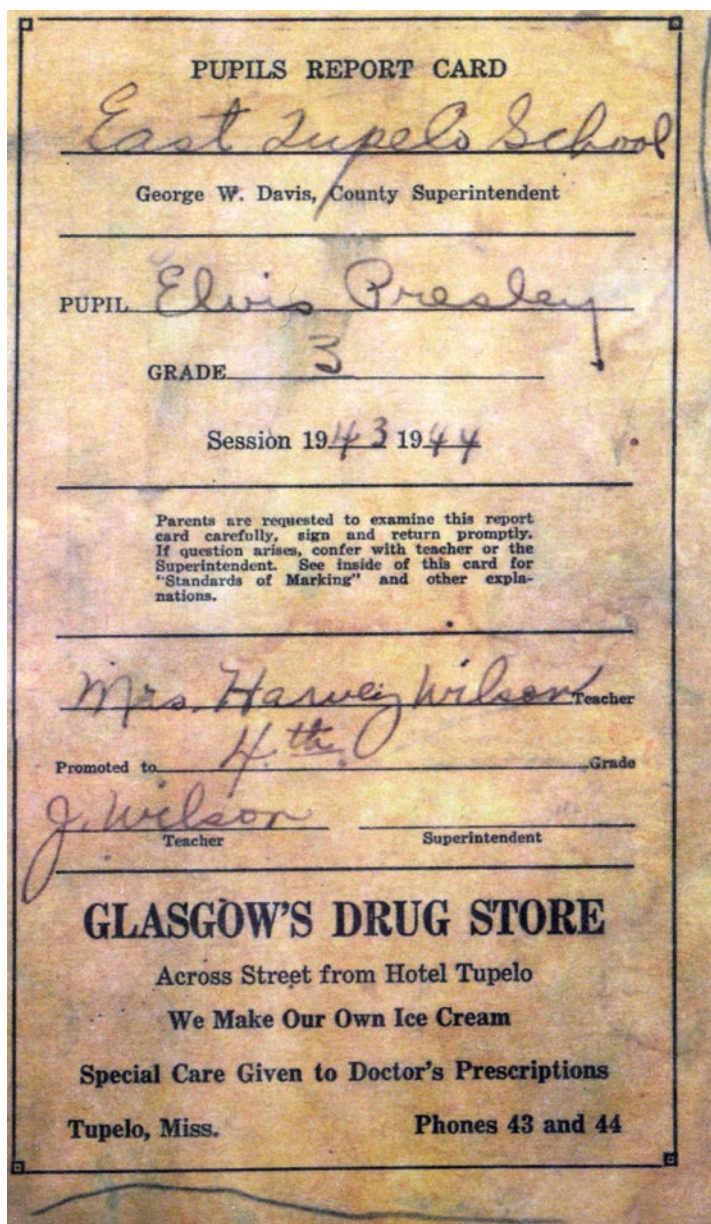 PUPILS REPORT CARD
East Tupelo School
George W. Davis, County Superintendent
PUPIL Elvis Presley
GRADE 3
Session 1943 1944
Parents are requested to examine this report
card carefully, sign and return promptly.
If question arises, confer with teacher or the
Superintendent. See inside of this card for
"Standards of Marking" and other expla-
nations.
Mrs. Harvey Wilson Teacher
Promoted to 4th Grade
J. Wilson
Teacher Superintendent
GLASGOW'S DRUG STORE
Across Street from Hotel Tupelo
We Make Our Own Ice Cream
Special Care Given to Doctor's Prescriptions
Tupelo, Miss. Phones 43 and 44